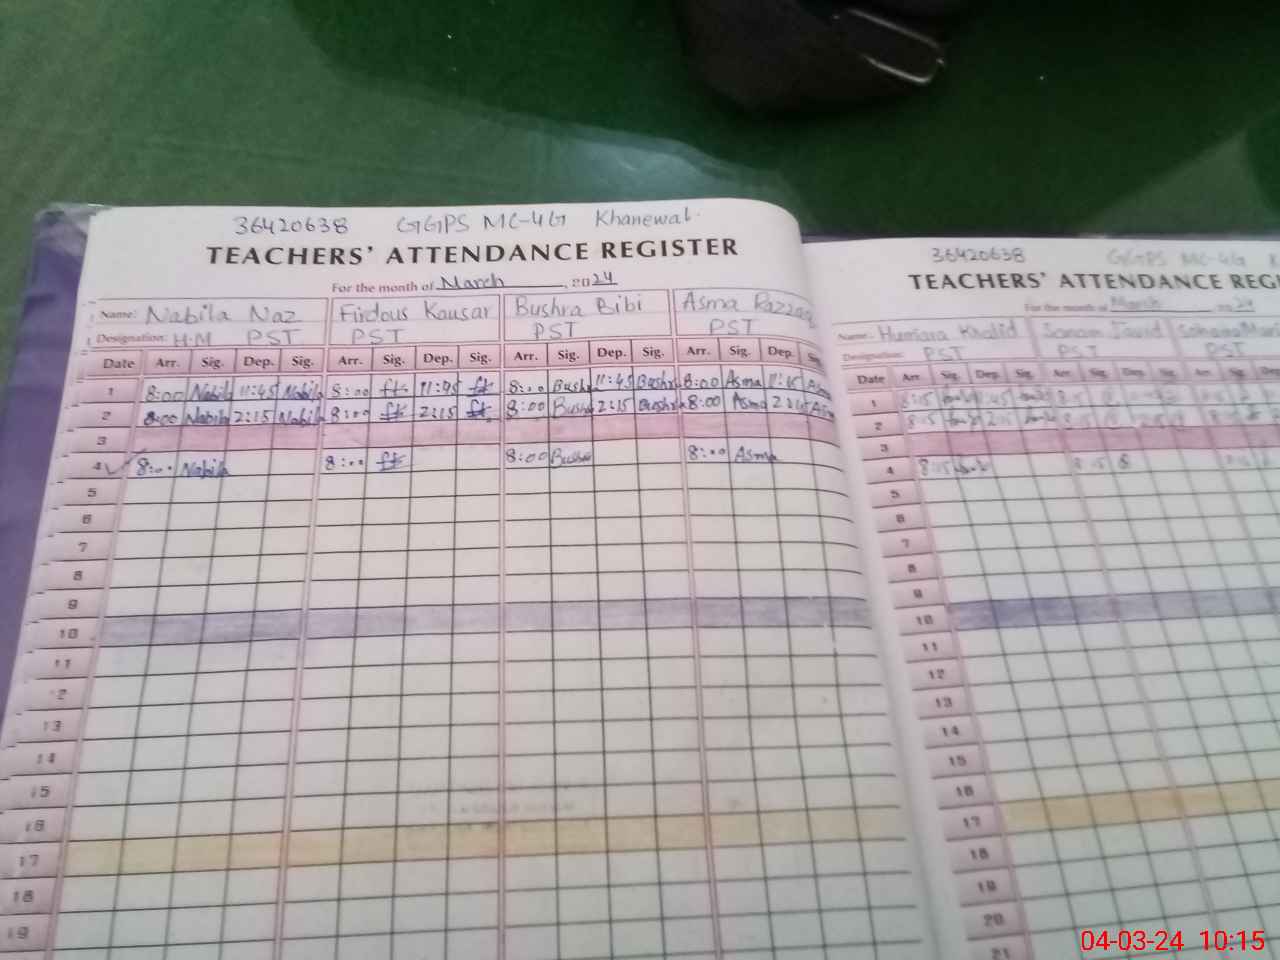 36420638 GGPS MC-4G Khanewal.
TEACHERS' ATTENDANCE REGISTER
For the month of March, 2024
Name: Nabila Naz Firdous Kausar Bushra Bibi Asma Razzaq
Designation: H.M PST PST PST PST
Date Arr. Sig. Dep. Sig. Arr. Sig. Dep. Sig. Arr. Sig. Dep. Sig. Arr. Sig. Dep. Sig.
1 8:00 Nabila 11:45 Nabila 8:00 11:45 8:00 Bushra 11:45 Bushra 8:00 Asma 11:45 Asma
2 8:00 Nabila 2:15 Nabila 8:00 2:15 8:00 Bushra 2:15 Bushra 8:00 Asma 2:15 Asma
3
4 8:00 Nabila 8:00 8:00 Bushra 8:00 Asma
5
6
7
8
9
10
11
12
13
14
15
16
17
18
19
36420638 GGPS MC-4G K
TEACHERS' ATTENDANCE REGI
For the month of March, 2024
Name: Humara Khalid
Designation: PST PST PST
Date Arr. Sig. Dep. Sig. Arr. Sig. Dep. Sig. Arr. Sig.
1 8:15
2 8:15 2:15
3
4 8:15 8:15
5
6
7
8
9
10
11
12
13
14
15
16
17
18
19
20
21
04-03-24 10:15